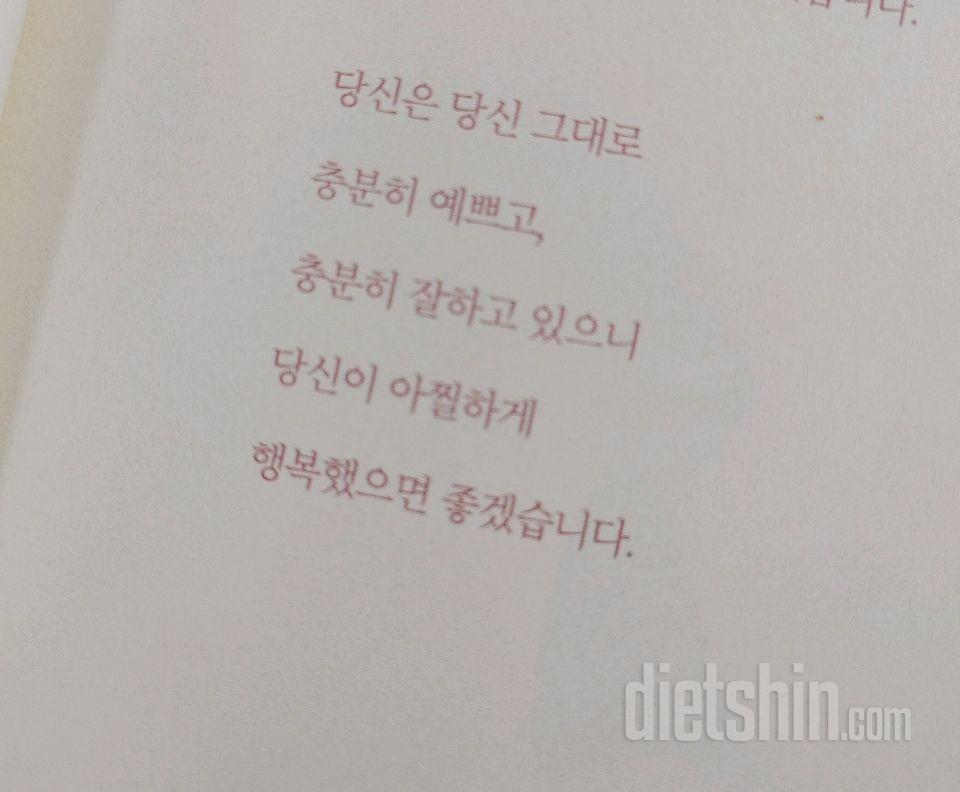 니다.
당신은 당신 그대로
충분히 예쁘고,
충분히 잘하고 있으니
당신이 아찔하게
행복했으면 좋겠습니다.
dietshin.com